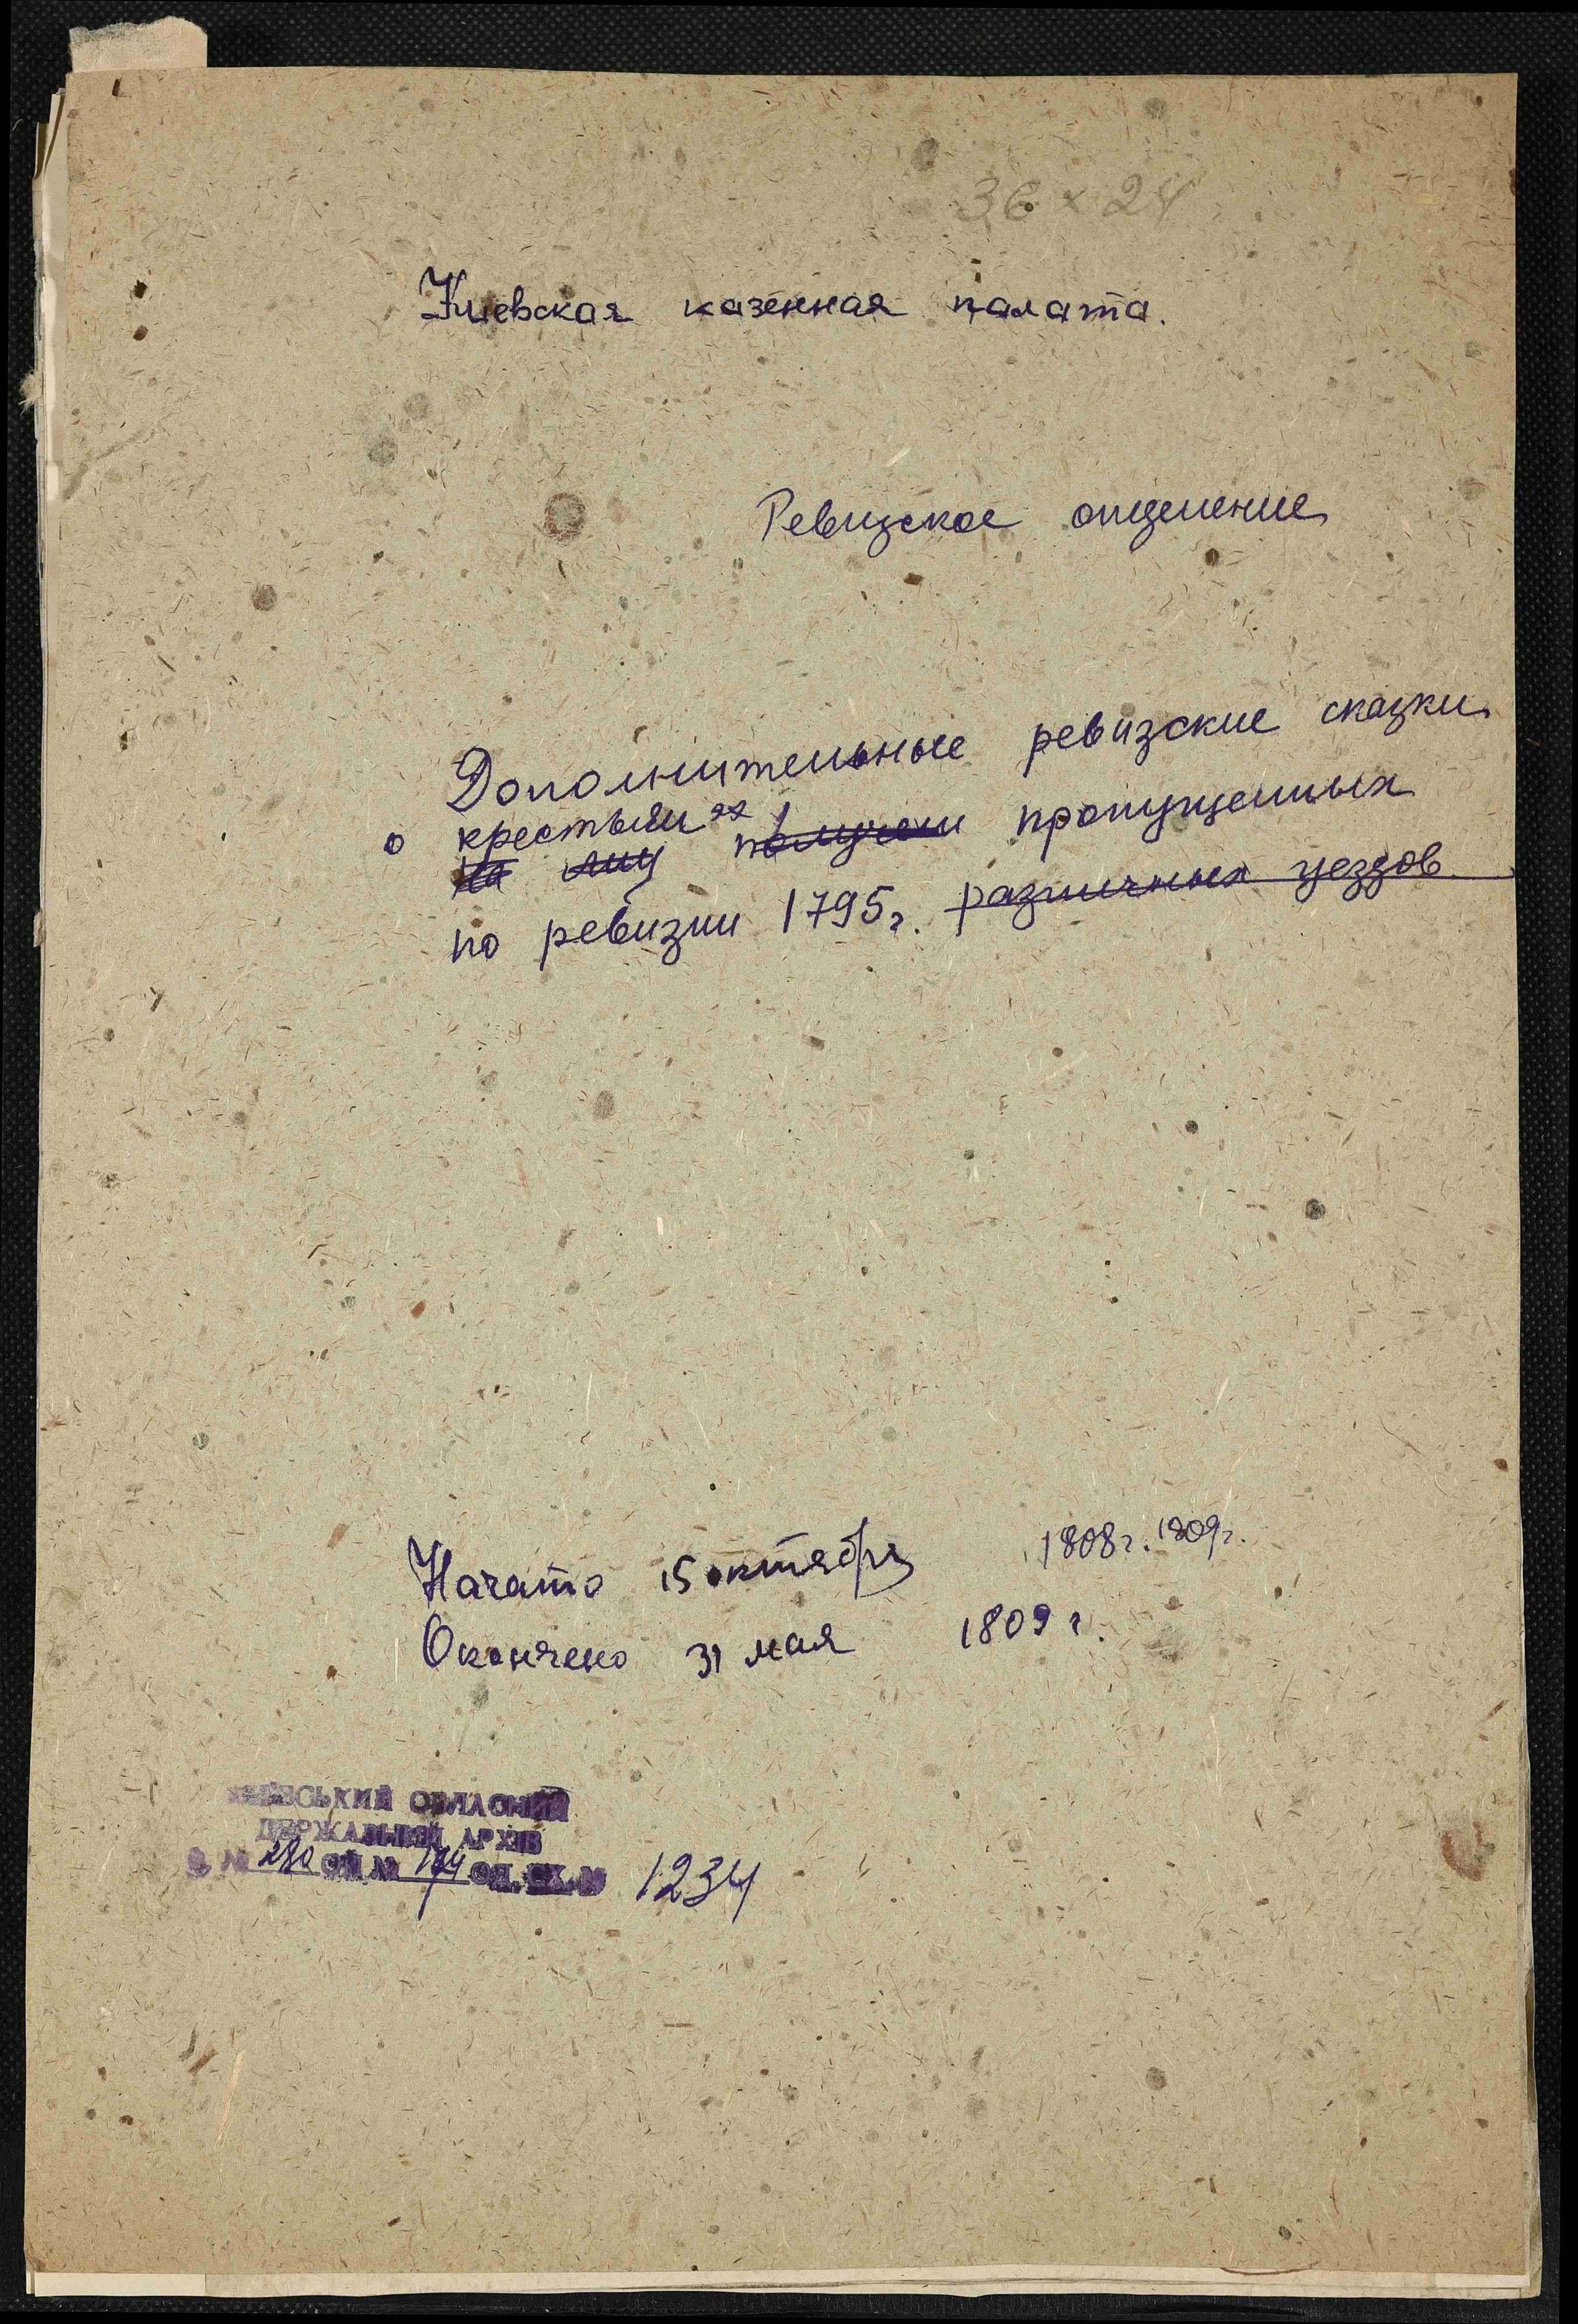 36 x 24
Киевская казенная палата.
Ревизское отделение
Дополнительные ревизские сказки
о крестьянах
на лиц пропущенных
по ревизии 1795г. различных уездов
Начато 15 октября 1808г. 1809г.
Окончено 31 мая 1809 г.
КИЇВСЬКИЙ ОБЛАСНИЙ
ДЕРЖАВНИЙ АРХІВ
Ф. № 280 оп № 174 од. зб. № 1234